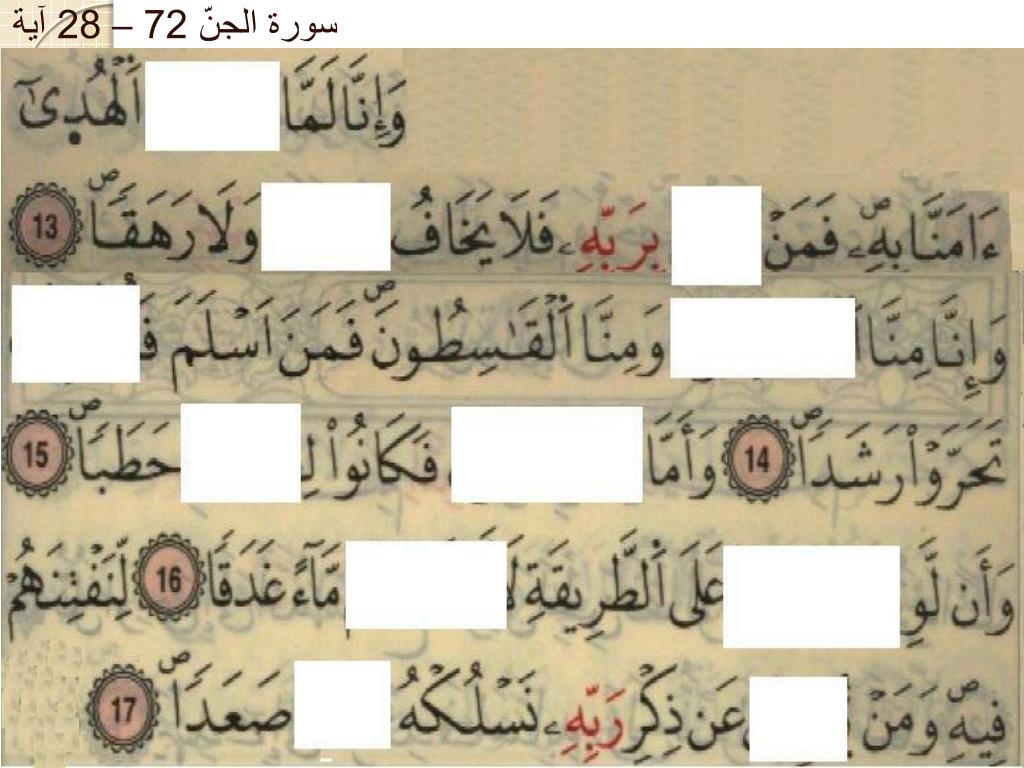 سورة الجنّ 72 – 28 آية
وَإِنَّا لَمَّا اَ۬لْهُد۪ىٰٓ
ءَامَنَّا بِهِۦۖ فَمَنْ بِرَبِّهِۦ فَلَا يَخَافُ وَلَا رَهَقاٗۖ 13
وَإِنَّا مِنَّا وَمِنَّا اَ۬لْقَٰسِطُونَۖ فَمَنَ اَسْلَمَ
تَحَرَّوْاْ رَشَداٗۖ 14 وَأَمَّا فَكَانُواْ حَطَباٗۖ 15
وَأَن لَّوِ عَلَى اَ۬لطَّرِيقَةِ مَّآءً غَدَقاٗ 16 لِّنَفْتِنَهُمْ
فِيهِۖ وَمَنْ عَن ذِكْرِ رَبِّهِۦ نَسْلُكْهُ صَعَداٗۖ 17